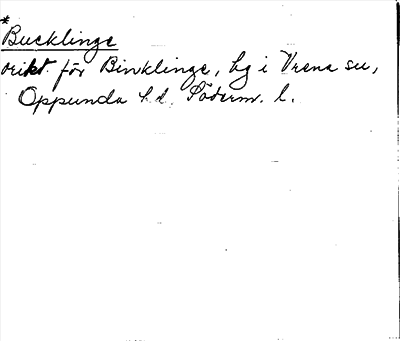 *
Bucklinge
orikt. för Binklinge, bg i Vrena sn,
Oppunda hd. Söderm. l.